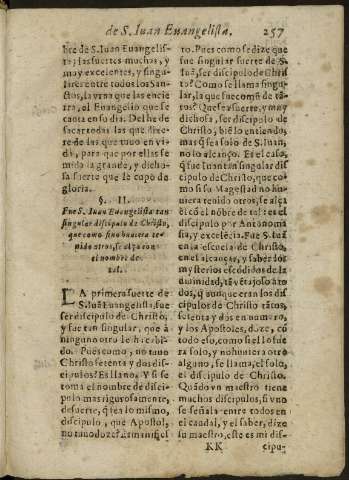 de S. Iuan Euangelista. 257
bre de S. Iuan Euangelis-
ta; las suertes muchas, y
muy excelentes, y singu-
lares entre todos los San-
ctos, la vna que las encie
rra, el Euangelio que se
canta en su dia. Del he de
sacar todas las que dixe-
re de las que tuuo en vi-
da, para que por ellas se
mida la grande, y dicho-
sa suerte que le cupo de
gloria.
§. II.
Fue S. Iuan Euangelista tan
singular discipulo de Christo,
que como si no huuiera te-
nido otros, se alça con
el nombre de
tal.
LA primera suerte de
S. Iuã Euangelista, fue
ser discipulo de Christo,
y fue tan singular, que à
ninguno otro le ha cabi-
do. Pues como, no tuuo
Christo setenta y dos dis-
cipulos? Es llano. Y si se
toma el nombre de disci-
pulo mas rigurosamente,
de suerte, q̃ sea lo mismo,
discipulo, que Apostol,
no tuuo doze?
to. Pues como se dize que
fue singular suerte de S.
Iuã, ser discipulo de Chris
to? Como se llama singu-
lar, la que fue comũ de tã-
tos? Que sea suerte, y muy
dichosa, ser discipulo de
Christo, biẽ lo entiendo,
mas q̃ sea solo de S. Iuan,
no lo alcanço. Es el caso,
q̃ fue Iuan tan singular dis
cipulo de Christo, que co-
mo si su Magestad no hu-
uiera tenido otros, se alça
cõ el nõbre de tal: es el
discipulo por Antonoma
sia, y excelẽcia. Fue S. Iuã
en la escuela de Christo,
en el alcançar, y saber los
mysterios escõdidos de la
diuinidad, tã vẽtajoso à to
dos, q̃ aunque eran los dis
cipulos de Christo tãtos,
setenta y dos en numero,
y los Apostoles, doze, cõ
todo esso, como si el lo fue
ra solo, y no huuiera otro
alguno, se llama, el solo,
el discipulo de Christo.
Quãdo vn maestro tiene
muchos discipulos, si vno
se señala entre todos en
el caudal, y el saber, dize
su maestro, este es mi dis-
KK cipu-